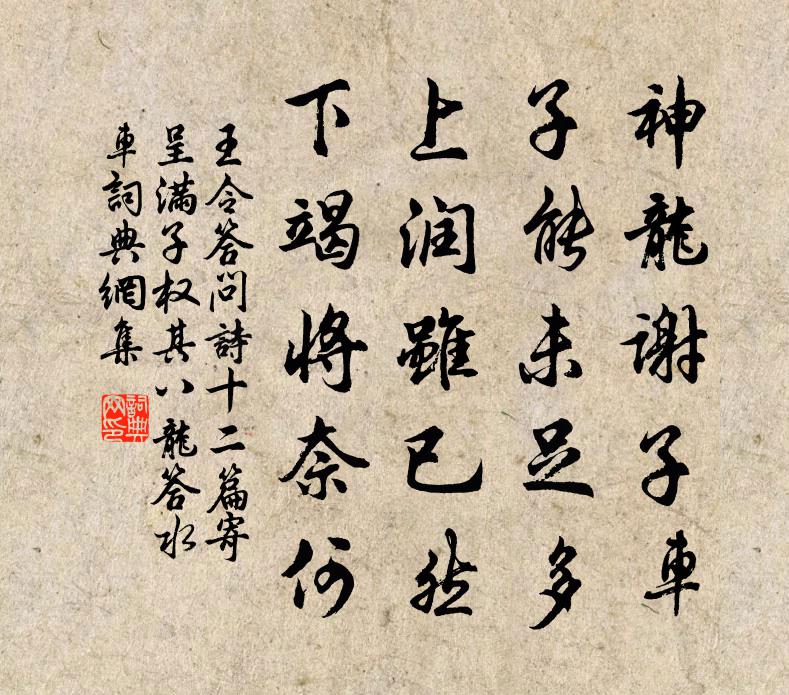 神龍謝子車
子能未足多
上润雖已然
下竭將奈何
王令答问詩十二篇寄
呈滿子权其八龍答水
車詞典網集
詞典
网印